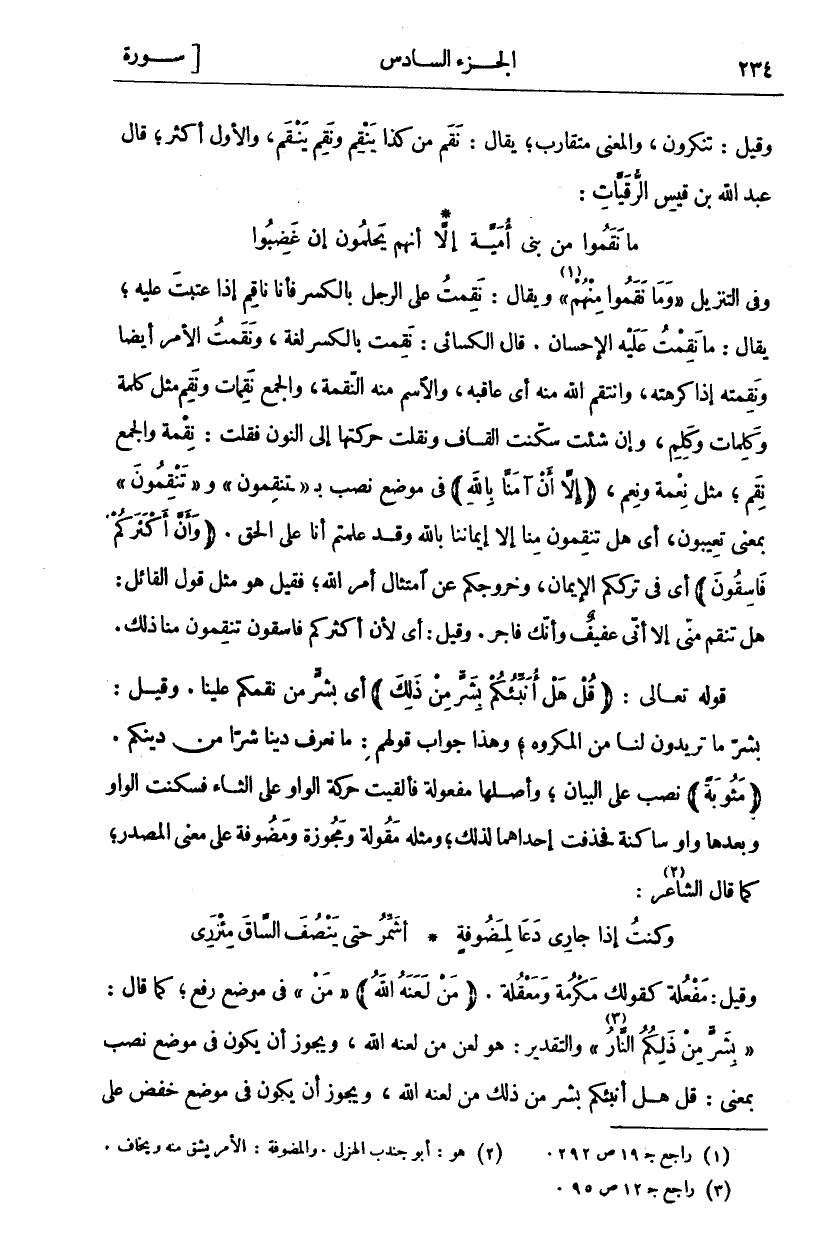 ٢٣٤ الجزء السادس [ سورة
وقيل : تنكرون ، والمعنى متقارب؛ يقال : نَقَم من كذا يَنْقِم ونَقِم يَنْقَم، والأول أكثر؛ قال
عبد الله بن قيس الرُّقَيَّاتِ :
ما نَقَموا من بنى أُمَيَّة إلَّا * أنهم يَحلُمُون إن غَضِبُوا
وفى التنزيل «وَمَا نَقَمُوا مِنْهُمْ»(١) ويقال : نَقِمتُ على الرجل بالكسر فأنا ناقِم إذا عتبتَ عليه ؛
يقال : ما نَقِمْتُ عَلَيْه الإحسان . قال الكسائى : نَقِمت بالكسر لغة ، ونَقَمتُ الأمر أيضا
ونَقِمته إذا كرهته ، وانتقم الله منه أى عاقبه ، والآسم منه النّقمة، والجمع نَقِمات ونَقِم مثل كلمة
وكَلِمات وكَلِم ، وإن شئت سكّنت القاف ونقلت حركتها إلى النون فقلت : نِقْمة والجمع
نِقَم ؛ مثل نِعْمة ونِعَم ، ﴿إِلَّا أَنْ آمَنَّا بِاللهِ﴾ فى موضع نصب بـ«تنقمون» و«تَنْقِمُونَ»
بمعنى تعيبون، أى هل تنقمون منا إلا إيماننا بالله وقد علمتم أنا على الحق . ﴿وَأَنَّ أَكْثَرَكُمْ
فَاسِقُونَ﴾ أى فى ترككم الإيمان، وخروجكم عن آمتثال أمر الله؛ فقيل هو مثل قول القائل:
هل تنقم منّى إلا أنّى عفيفٌ وأنّك فاجر. وقيل: أى لأن أكثركم فاسقون تنقمون منا ذلك.
قوله تعالى : ﴿قُلْ هَلْ أُنَبِّئُكُمْ بِشَرٍّ مِنْ ذَلِكَ﴾ أى بشرٍّ من نقمكم علينا . وقيل :
بشرّ ما تريدون لنا من المكروه ؛ وهذا جواب قولهم : ما نعرف دينا شرّا من دينكم .
﴿مَثُوبَةً﴾ نصب على البيان ؛ وأصلها مفعولة فألقيت حركة الواو على الثاء فسكنت الواو
وبعدها واو ساكنة فحذفت إحداهما لذلك؛ ومثله مَقُولة ومَجُوزة ومَضُوفة على معنى المصدر؛
كما قال الشاعر(٢) :
وكنتُ إذا جارِى دَعَا لِمَضُوفةٍ * أشَمِّرُ حتى يَنْصُفَ السَّاقَ مِئْزَرِى
وقيل: مَفْعُلة كقولك مَكْرُمة ومَعْقُلة . ﴿مَنْ لَعَنَهُ اللَّهُ﴾ «مَنْ» فى موضع رفع ؛ كما قال :
«بِشَرٍّ مِنْ ذَلِكُمُ النَّارُ»(٣) والتقدير : هو لعن من لعنه الله ، ويجوز أن يكون فى موضع نصب
بمعنى : قل هل أنبئكم بشر من ذلك من لعنه الله ، ويجوز أن يكون فى موضع خفض على
(١) راجع جـ ١٩ ص ٢٩٢ . (٢) هو : أبو جندب الهزلى . والمضوفة : الأمر يشق منه ويخاف .
(٣) راجع جـ ١٢ ص ٩٥ .